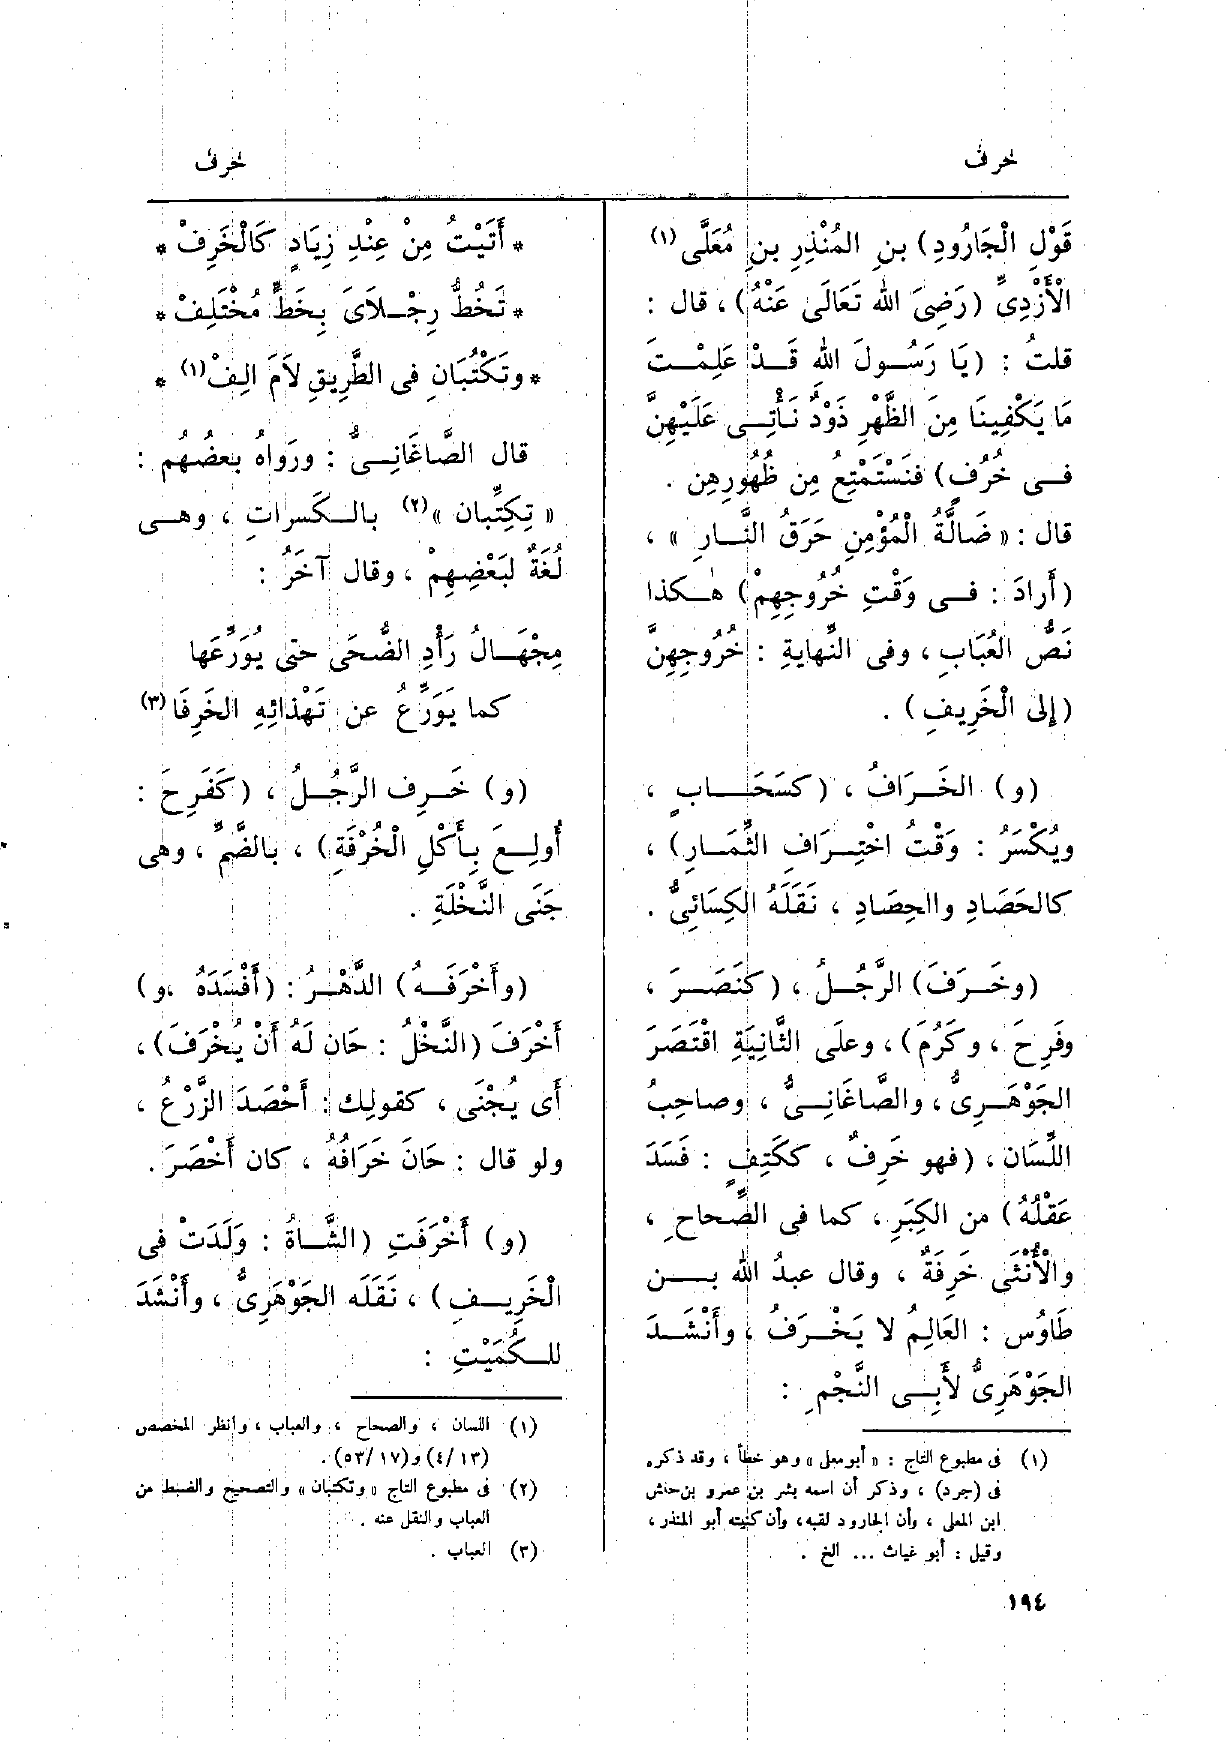 خرف
خرف
قَوْلِ الْجَارُودِ) بنِ المُنْذِرِ بنِ مُعَلَّى (١)
الْأَزْدِىِّ (رَضِىَ اللهُ تَعَالَى عَنْهُ) ، قال :
قلتُ : (يَا رَسُولَ اللهِ قَدْ عَلِمْتَ
مَا يَكْفِينَا مِنَ الظَّهْرِ ذَوْدٌ نَأْتِى عَلَيْهِنَّ
فى خُرُفٍ) فنَسْتَمْتِعُ مِن ظُهُورِهِن .
قال : « ضَالَّةُ الْمُؤْمِنِ حَرَقُ النَّارِ » ،
(أَرادَ : فى وَقْتِ خُرُوجِهِمْ) هٰكذا
نَصُّ العُبَابِ ، وفى النِّهايةِ : خُرُوجِهِنَّ
(إِلَى الْخَرِيفِ) .
(و) الخَرَافُ ، (كسَحَابٍ ،
ويُكْسَرُ : وَقْتُ اخْتِرَافِ الثِّمَارِ) ،
كالحَصَادِ والحِصَادِ ، نَقَلَهُ الكِسَائِىُّ .
(وخَرَفَ) الرَّجُلُ ، (كنَصَرَ ،
وفَرِحَ ، وكَرُمَ) ، وعلَى الثَّانِيَةِ اقْتَصَرَ
الجَوْهَرِىُّ ، والصَّاغَانِىُّ ، وصاحِبُ
اللِّسَانِ ، (فهو خَرِفٌ ، ككَتِفٍ : فَسَدَ
عَقْلُهُ) من الكِبَرِ ، كما فى الصِّحاحِ ،
والأُنْثَى خَرِفَةٌ ، وقال عبدُ الله بن
طَاوُس : العَالِمُ لا يَخْرَفُ ، وأَنْشَدَ
الجَوْهَرِىُّ لأَبِى النَّجْمِ :
(١) فى مطبوع التاج : « أبو معلى » وهو خطأ ، وقد ذكره
فى (جرد) ، وذكر أن اسمه بشر بن عمرو بن حنش
ابن المعلى ، وأن الجارود لقبه، وأن كنيته أبو المنذر ،
وقيل : أبو غياث ... الخ .
١٩٤
* أَتَيْتُ مِنْ عِنْدِ زِيَادٍ كَالْخَرِفْ *
* تَخُطُّ رِجْلَاىَ بِخَطٍّ مُخْتَلِفْ *
* وتَكْتُبَانِ فى الطَّرِيقِ لَامَ الِفْ (١) *
قال الصَّاغَانِىُّ : ورَوَاهُ بعضُهُم :
« تِكِتِّبان » (٢) بالكَسراتِ ، وهى
لُغَةٌ لبَعْضِهِمْ ، وقال آخَرُ :
مِجْهَالُ رَأْدِ الضُّحَى حتى يُوَرِّعَها
كما يُوَرِّعُ عن تَهْذائِهِ الخَرِفَا (٣)
(و) خَرِف الرَّجُلُ ، (كَفَرِحَ :
أُولِعَ بِأَكْلِ الْخُرْفَةِ) ، بالضَّمِّ ، وهى
جَنَى النَّخْلَةِ .
(وأَخْرَفَهُ) الدَّهْرُ : (أَفْسَدَهُ ،و)
أَخْرَفَ (النَّخْلُ : حَان لَهُ أَنْ يُخْرَفَ) ،
أَى يُجْنَى ، كقولِك : أَحْصَدَ الزَّرْعُ ،
ولو قال : حَانَ خَرَافُهُ ، كان أَخْصَرَ .
(و) أَخْرَفَتِ (الشَّاةُ : وَلَدَتْ فى
الْخَرِيفِ) ، نَقَلَه الجَوْهَرِىُّ ، وأَنْشَدَ
للكُمَيْتِ :
(١) اللسان ، والصحاح ، والعباب ، وانظر المخصص
(٤/١٣) و(٥٣/١٧).
(٢) فى مطبوع التاج « وتكتبان » والتصحيح والضبط من
العباب والنقل عنه .
(٣) العباب .